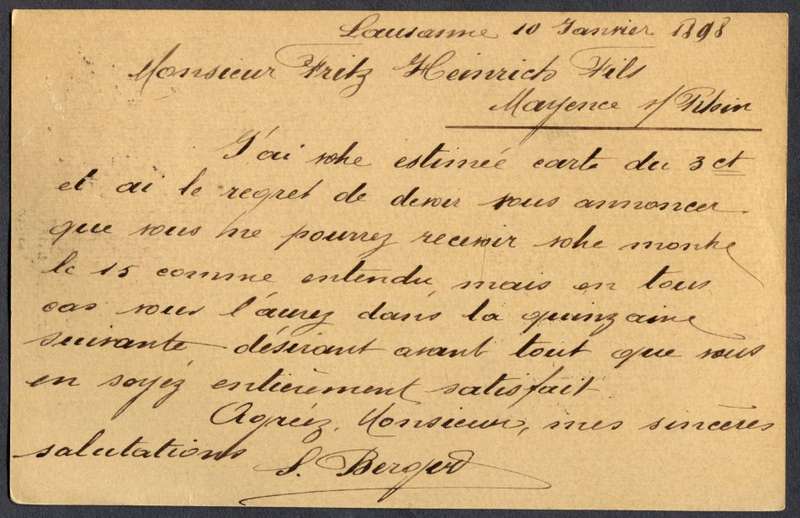 Lausanne 10 Janvier 1898
Monsieur Fritz Heinrich Fils
Mayence s/ Rhin
J'ai votre estimée carte du 3 ct
et ai le regret de devoir vous annoncer
que vous ne pourrez recevoir votre montre
le 15 comme entendu, mais en tous
cas vous l'aurez dans la quinzaine
suivante désirant avant tout que vous
en soyez entièrement satisfait.
Agréez, Monsieur, mes sincères
salutations